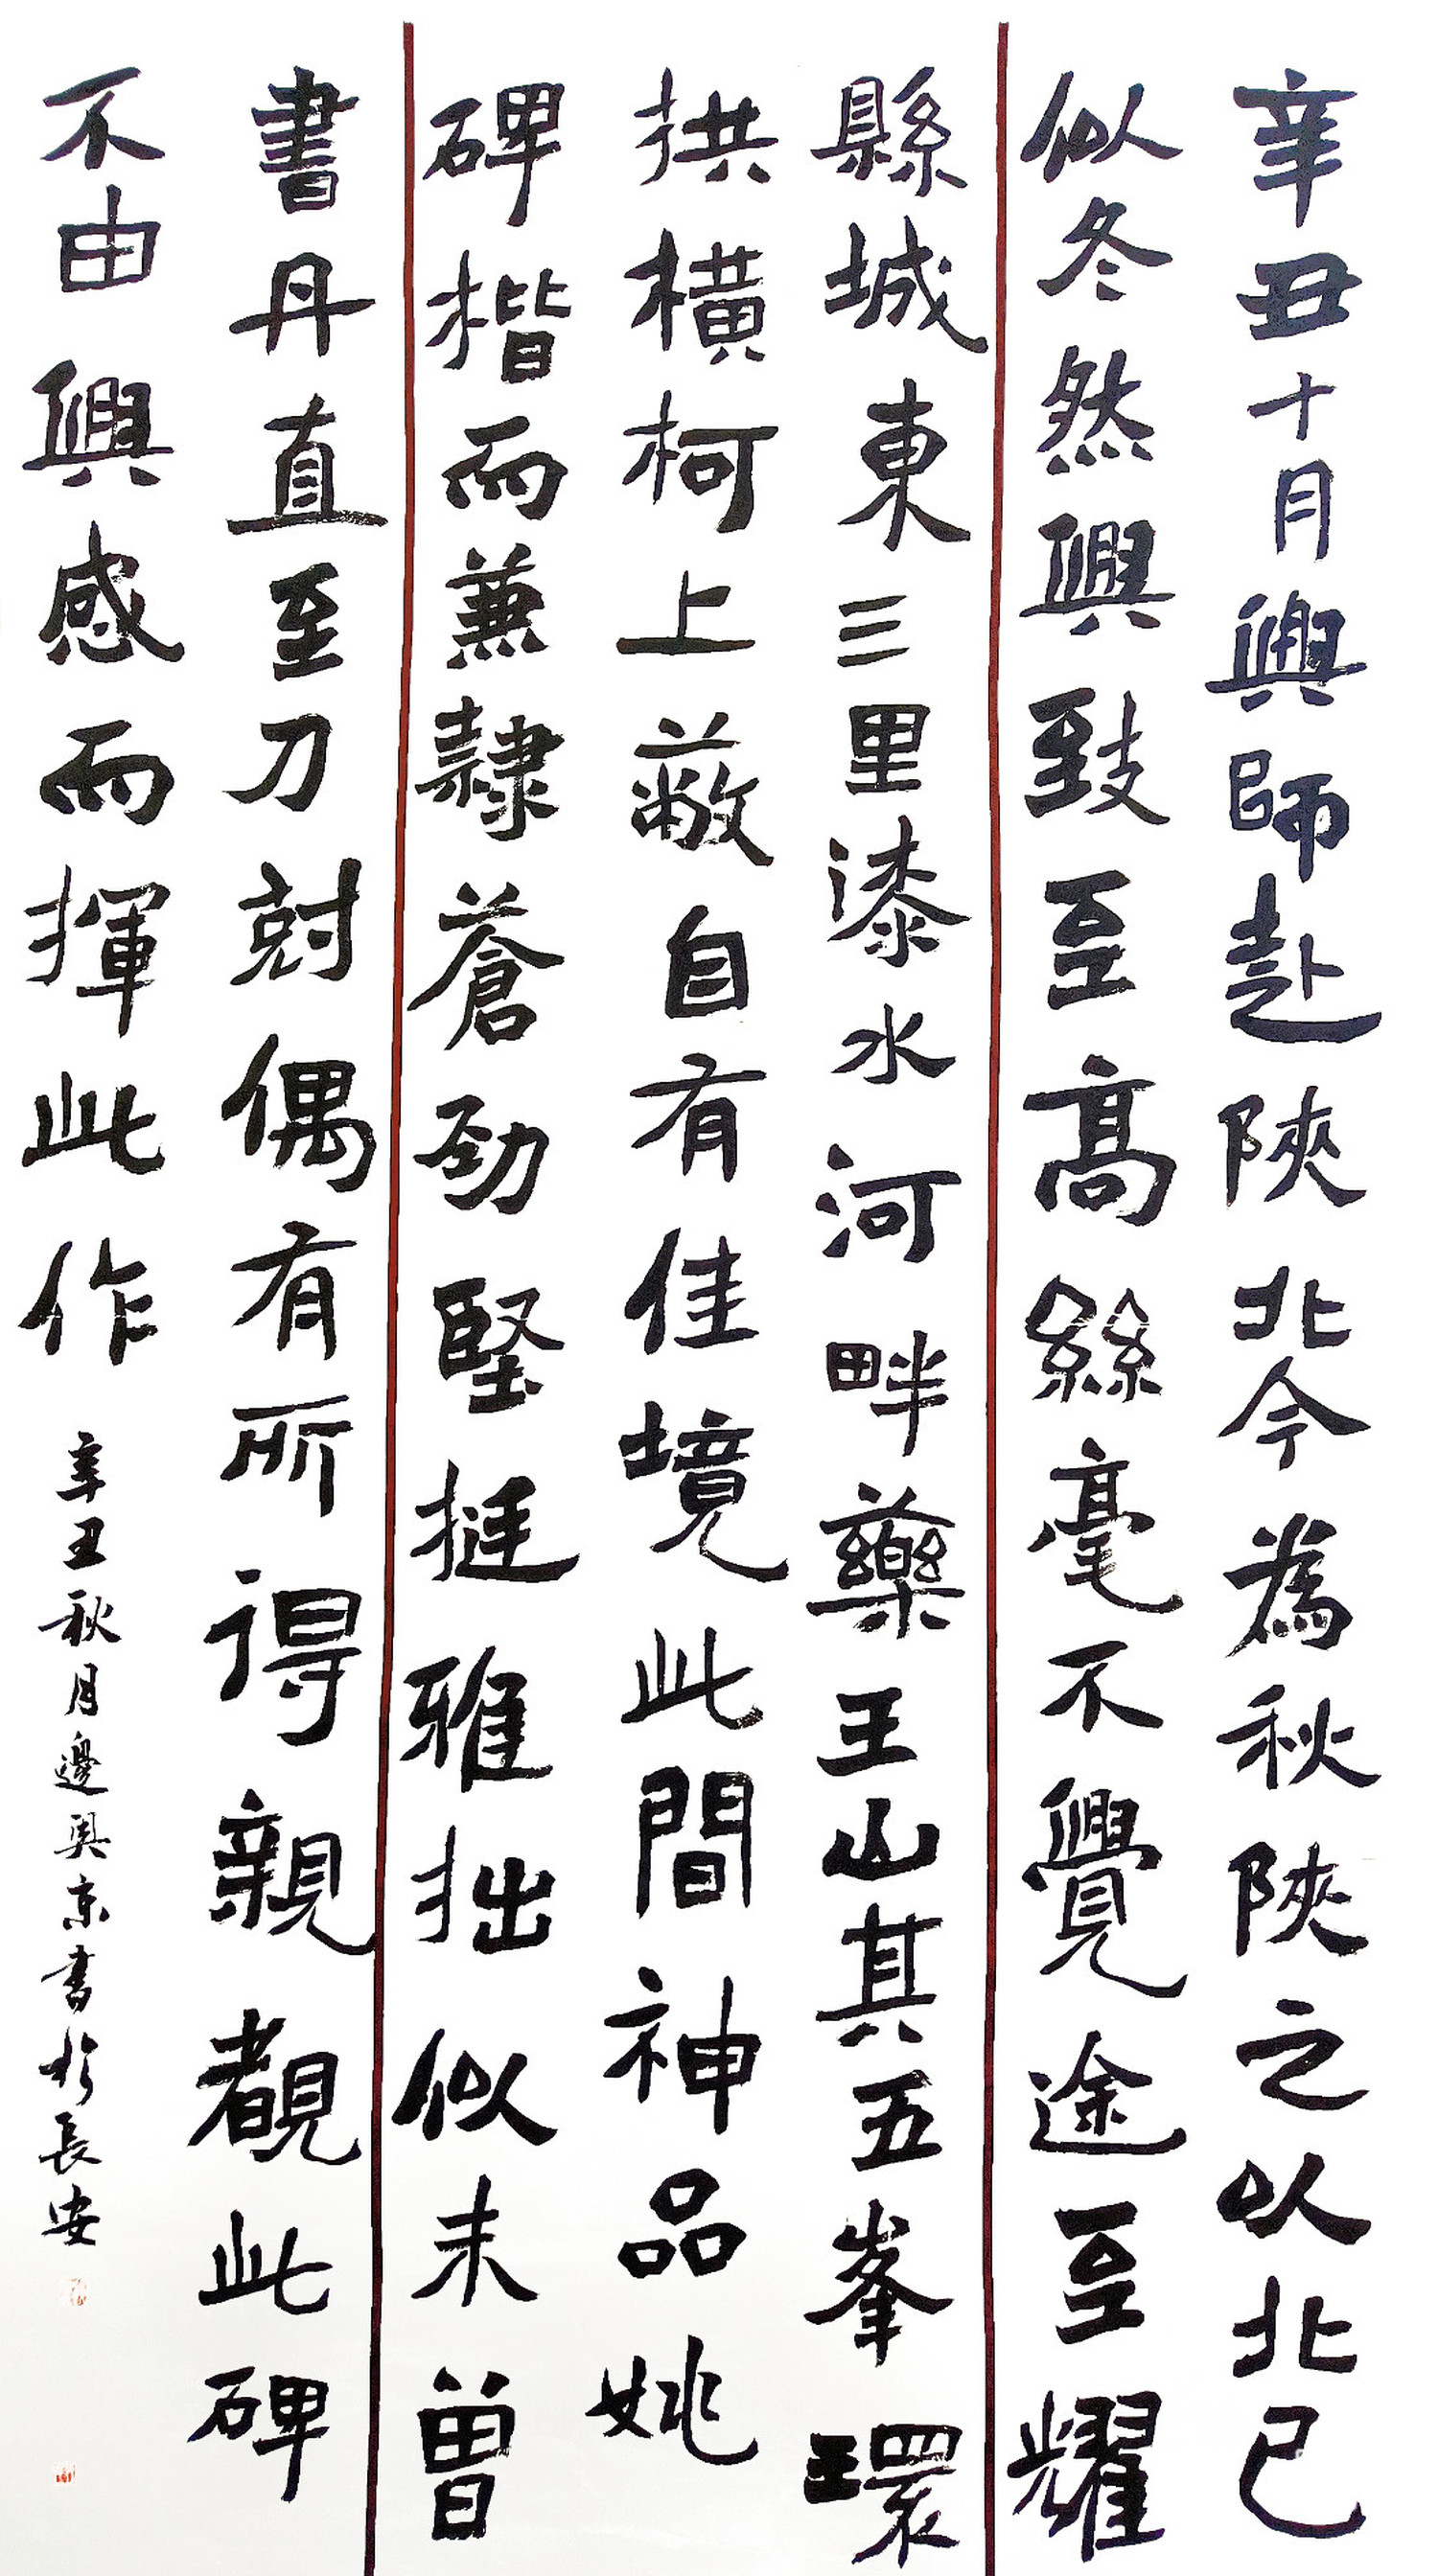 辛丑十月興師赴陝北今為秋陝之以北已
似冬然興致至高絲毫不覺途至耀
縣城東三里漆水河畔藥王山其五峯環
拱橫柯上蔽自有佳境此間神品姚
碑楷而兼隸蒼勁堅挺雅拙似未曾
書丹直至刀尅偶有所得親覩此碑
不由興感而揮此作
辛丑秋月邊奥京書於長安